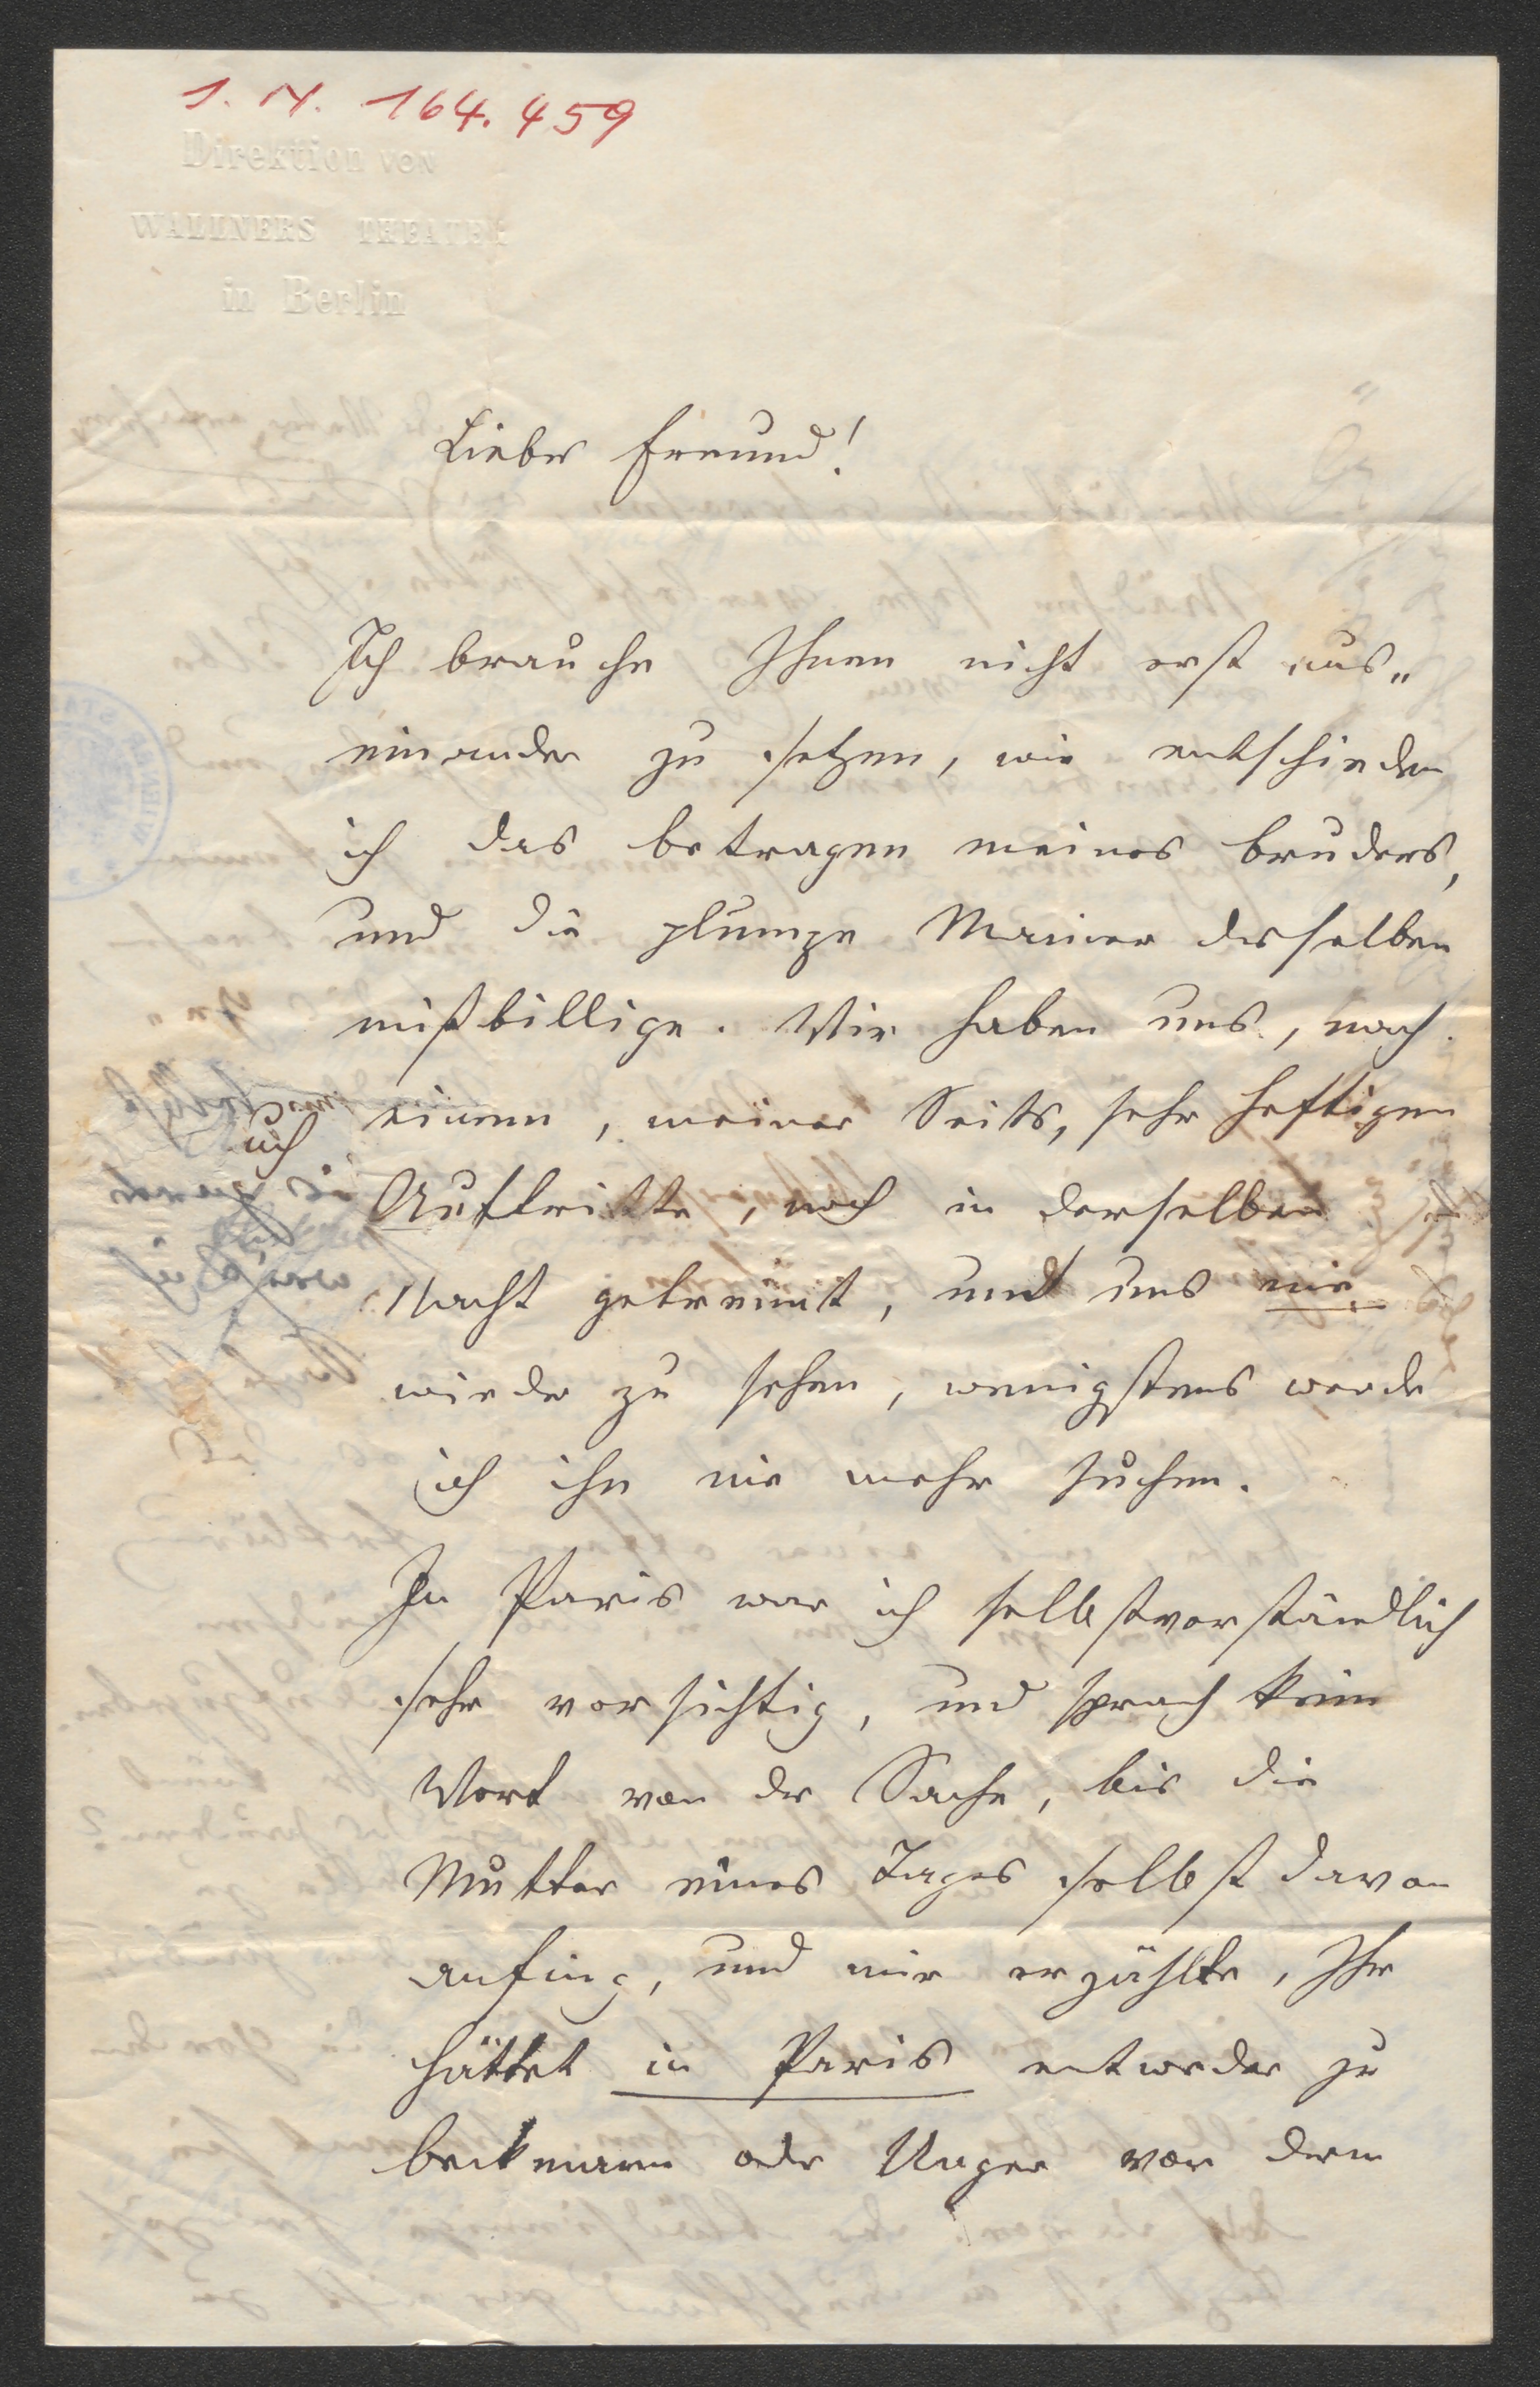 I. N. 164.459
Direktion von
WALLNERS THEATER
in Berlin
Lieber Freund!
Ich brauche Ihnen nicht erst aus„
einander zu setzen, wie entschieden
ich das Betragen meines Bruders,
und die plumpe Manier desselben
mißbillige. Wir haben uns, nach
einem, meiner Seits, sehr heftigen
Auftritte, noch in derselben
Nacht getrennt, und uns nie
wieder zu sehen, wenigstens werde
ich ihn nie mehr suchen.
In Paris war ich selbstverständlich
sehr vorsichtig, und sprach kein
Wort von der Sache, bis die
Mutter eines Tages selbst davon
anfing, und mir erzählte, Ihr
hättet in Paris entweder zu
Beckmann oder Unger von dem